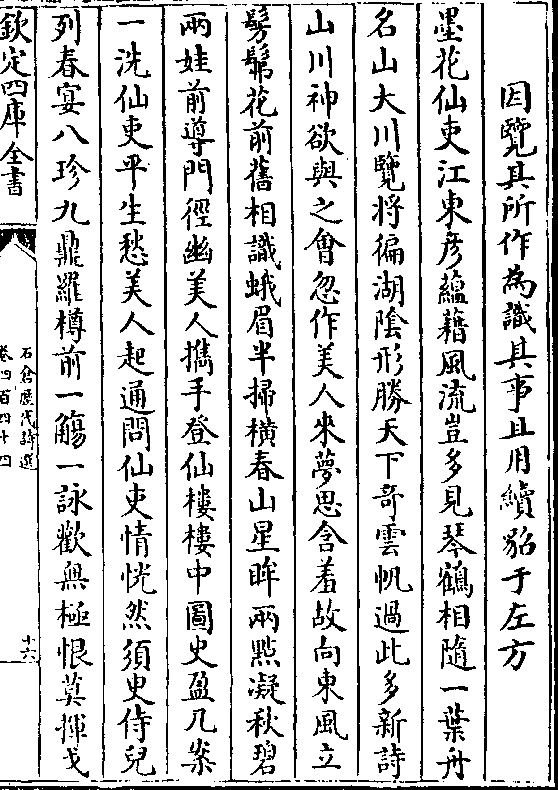 因覽其所作為識其事且用續貂于左方
墨花仙吏江東彥蘊藉風流豈多見琴鶴相隨一葉舟
名山大川覽將徧湖陰形勝天下奇雲帆過此多新詩
山川神欲與之會忽作美人來夢思含羞故向東風立
髣髴花前舊相識蛾眉半掃橫春山星眸兩㸃凝秋碧
兩娃前導門徑幽美人攜手登仙樓樓中圖史盈几案
一洗仙吏平生愁美人起通問仙吏情恍然須史侍兒
列春宴八珍九鼎羅樽前一觴一詠歡無極恨莫揮戈
欽定四庫全書
石倉歷代詩選
卷四百四十四
十六